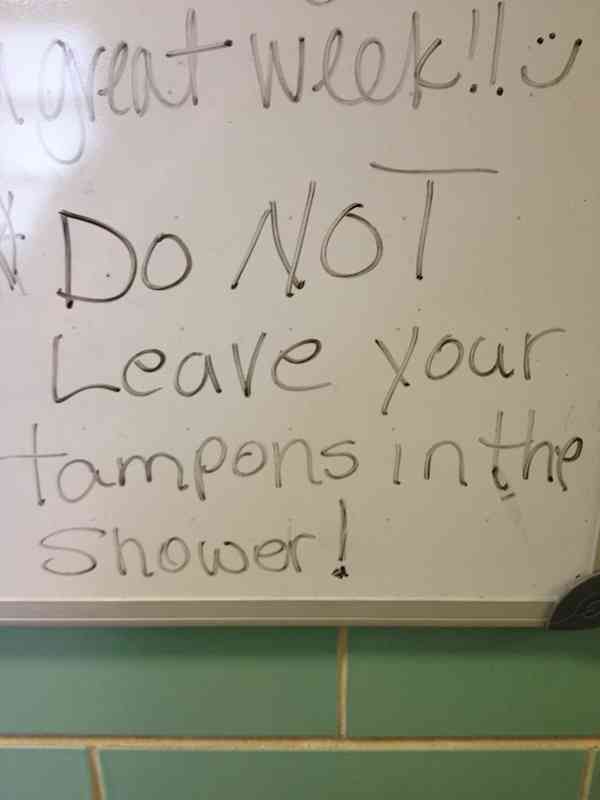 great week!! :)
* DO NOT
Leave your
tampons in the
Shower!